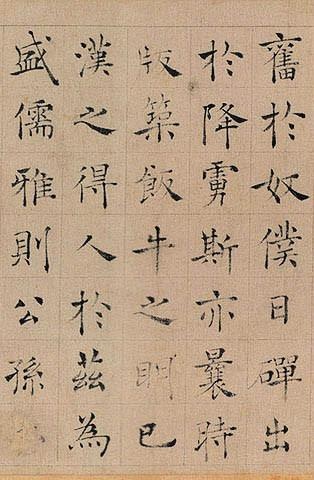 奮於奴僕日磾出
於降虜斯亦曩時
版築飯牛之明已
漢之得人於茲為
盛儒雅則公孫